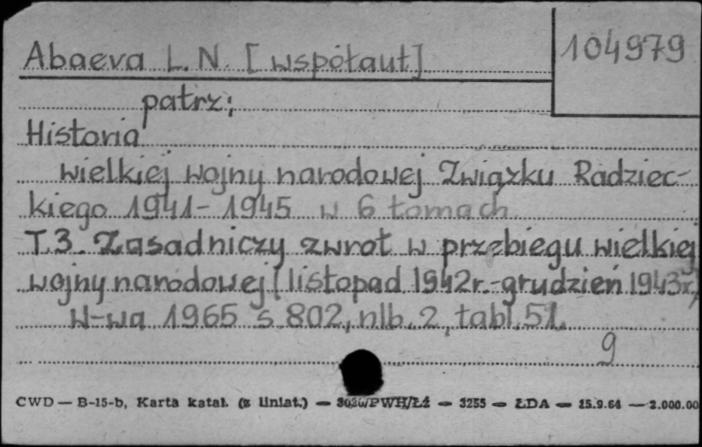 Abaeva L. N. [współaut]
104979
patrz:
Historia
wielkiej wojny narodowej Związku Radziec-
kiego 1941-1945 w 6 tomach
T.3. Zasadniczy zwrot w przebiegu wielkiej
wojny narodowej (listopad 1942r.-grudzień 1943r.)
W-wa 1965 s 802, nlb. 2, tabl. 51.
9
CWD — B-15-b, Karta katal. (z liniat.) — /PWH/Łź — 3255 — ŁDA — 15.9.64 — 2.000.00